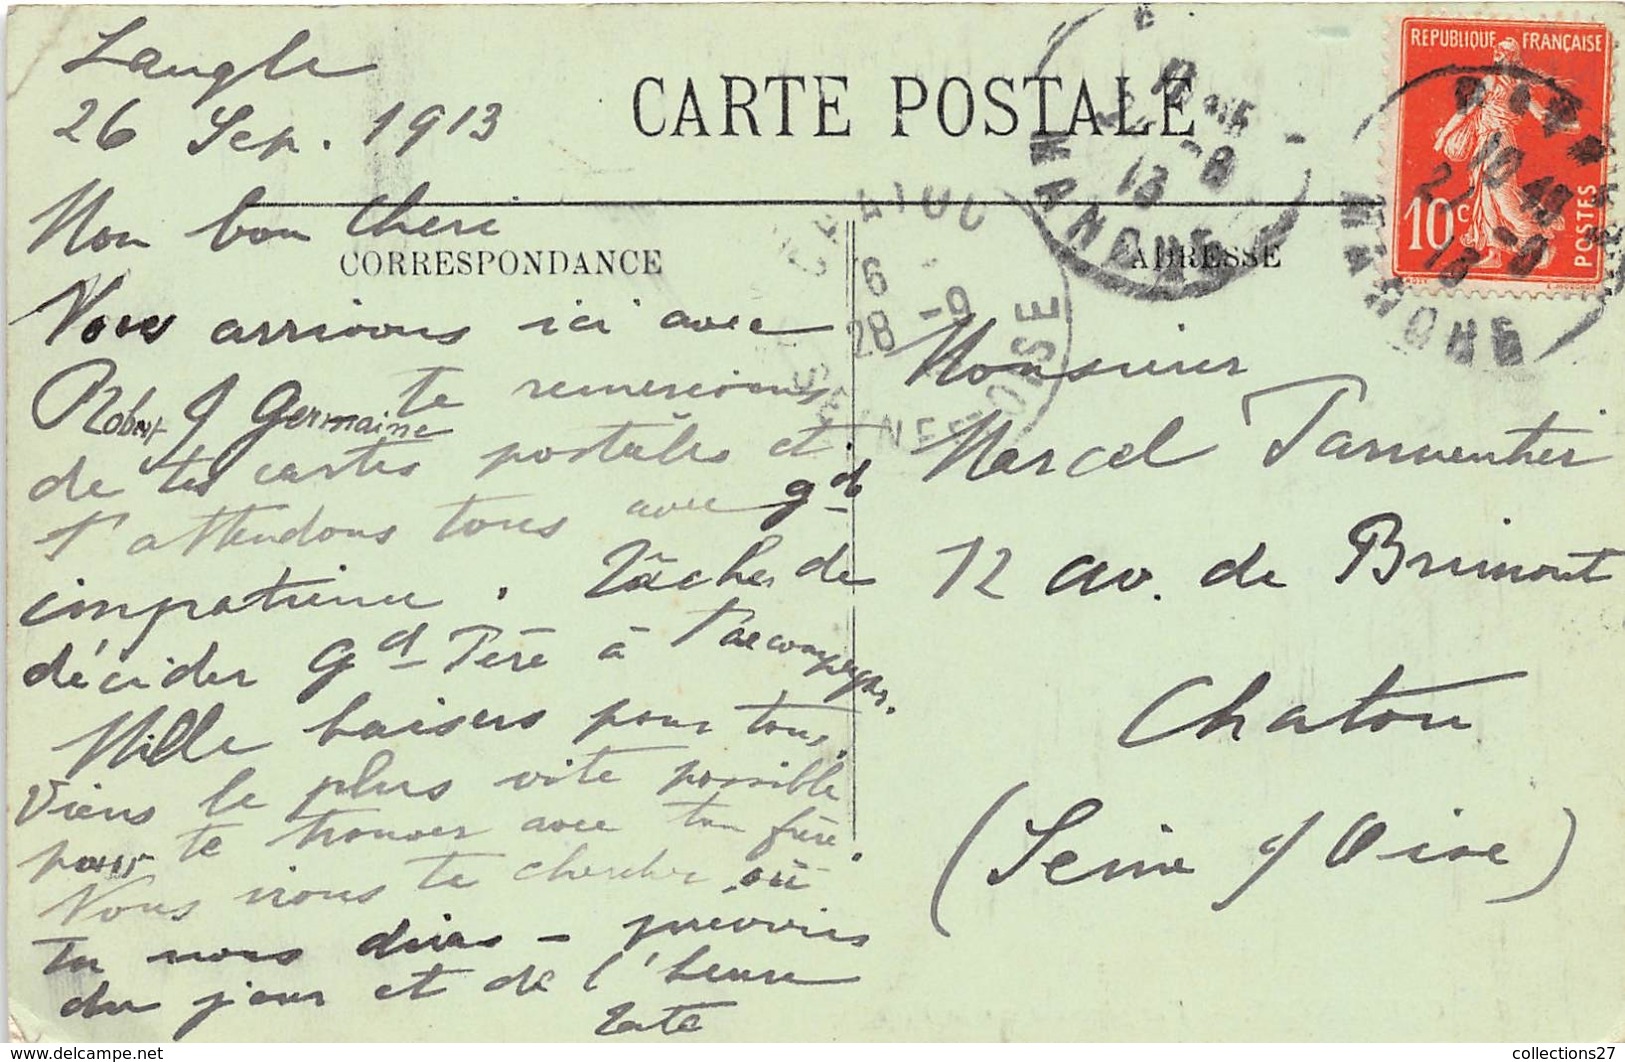 Langle
26 Sep. 1913
CARTE POSTALE
Mon bon Cheri
CORRESPONDANCE
Nous arrivons ici avec
Robert & Germaine te remercions
de tes cartes postales et
t'attendons tous avec gde
impatience. Tâches de
décider Gd Père à t'accompagner.
Mille baisers pour tous.
Viens le plus vite possible
pour te trouver avec ton frère.
Nous irons te chercher où
tu nous diras - préviens
du jour et de l'heure
ADRESSE
Monsieur
Marcel Parmentier
12 av. de Brimont
Chatou
(Seine & Oise)
REPUBLIQUE FRANÇAISE
10c
POSTES
MANCHE
10 45
27 -9
13
6
28 -9
SEINE ET OISE
collections27